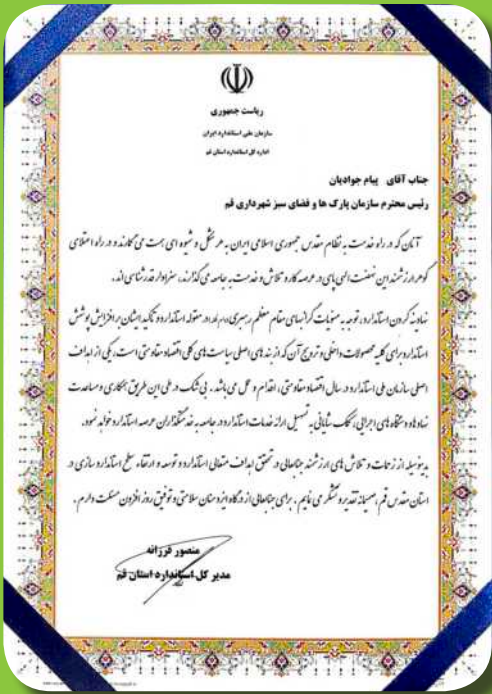 ریاست جمهوری
سازمان ملی استاندارد ایران
اداره کل استاندارد استان قم
جناب آقای پیام جوادیان
رئیس محترم سازمان پارک ها و فضای سبز شهرداری قم
آنان که در راه خدمت به نظام مقدس جمهوری اسلامی ایران به هر شکل و شیوه ای همت می گمارند و در راه اعتلای
گوهر ارزشمند این نهضت الهی پای در عرصه کار و تلاش و خدمت به جامعه می گذارند، سزاوار قدرشناسی اند.
نهادینه کردن استاندارد، توجه به منویات گرانبهای مقام معظم رهبری در مقوله استاندارد و تاکید ایشان بر افزایش پوشش
استاندارد برای کلیه محصولات داخلی و ترویج آن که از بندهای اصلی سیاست های کلی اقتصاد مقاومتی است، یکی از اهداف
اصلی سازمان ملی استاندارد در سال اقتصاد مقاومتی، اقدام و عمل می باشد. بی شک در طی این طریق همکاری و مساعدت
نهادها و دستگاه های اجرایی، کمک شایانی به تسهیل ارائه خدمات استاندارد در جامعه به خدمتگزاران عرصه استاندارد خواهد نمود.
بدینوسیله از زحمات و تلاش های ارزشمند جنابعالی در تحقق اهداف متعالی استاندارد و توسعه و ارتقاء سطح استانداردسازی در
استان مقدس قم، صمیمانه تقدیر و تشکر می نمایم. برای جنابعالی از درگاه ایزد منان سلامتی و توفیق روز افزون مسئلت دارم.
منصور فرزانه
مدیر کل استاندارد استان قم